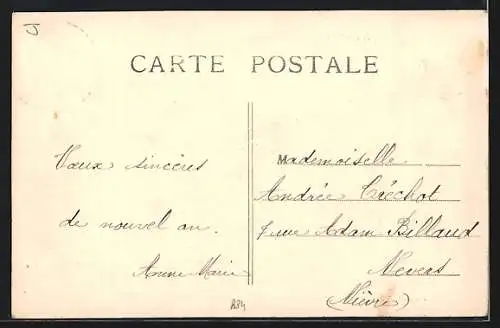 CARTE POSTALE
Vœux sincères
de nouvel an.
Anne Marie
Mademoiselle
Andrée Créchot
7 rue Adam Billaud
Nevers
(Nièvre)